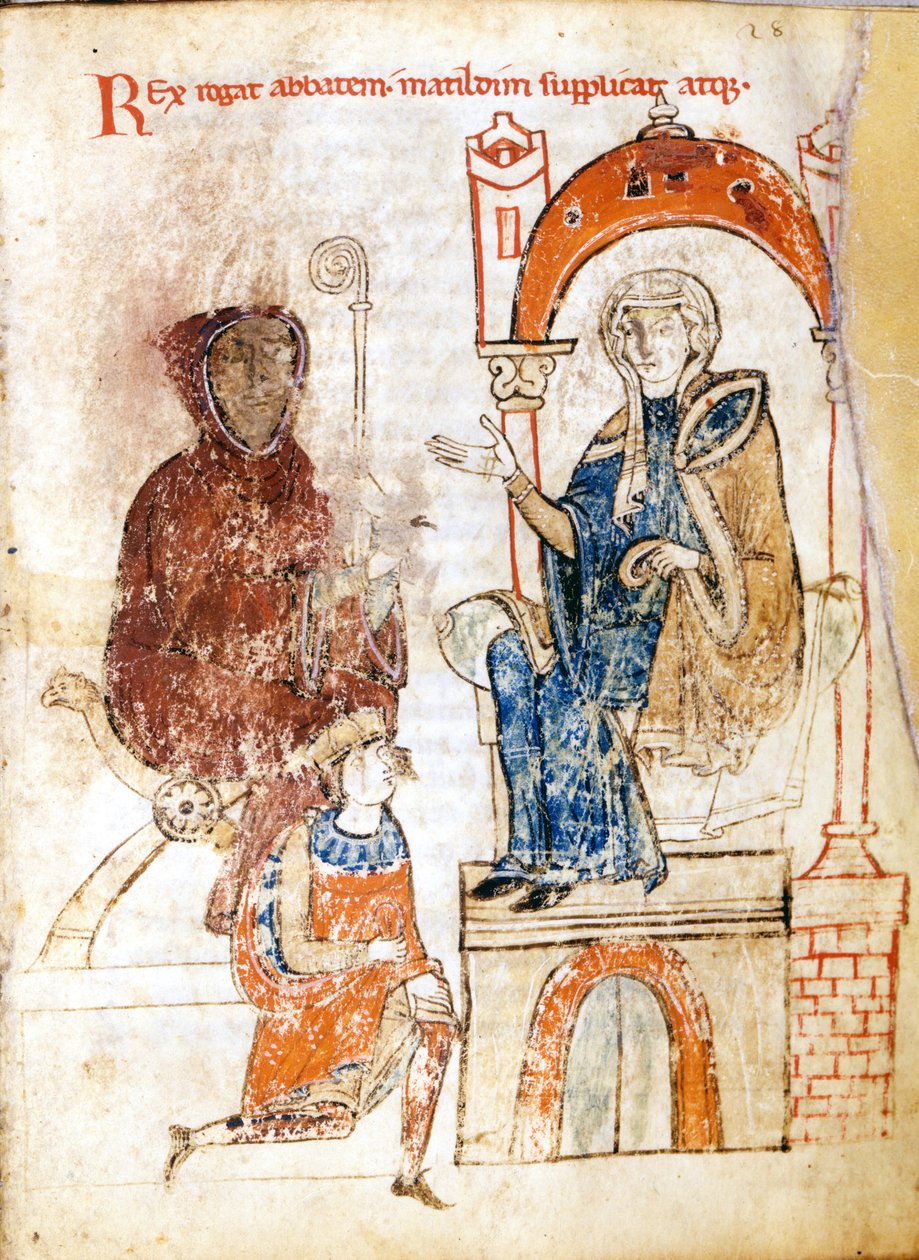 28
Rex rogat abbatem. matildim supplicat atq;.